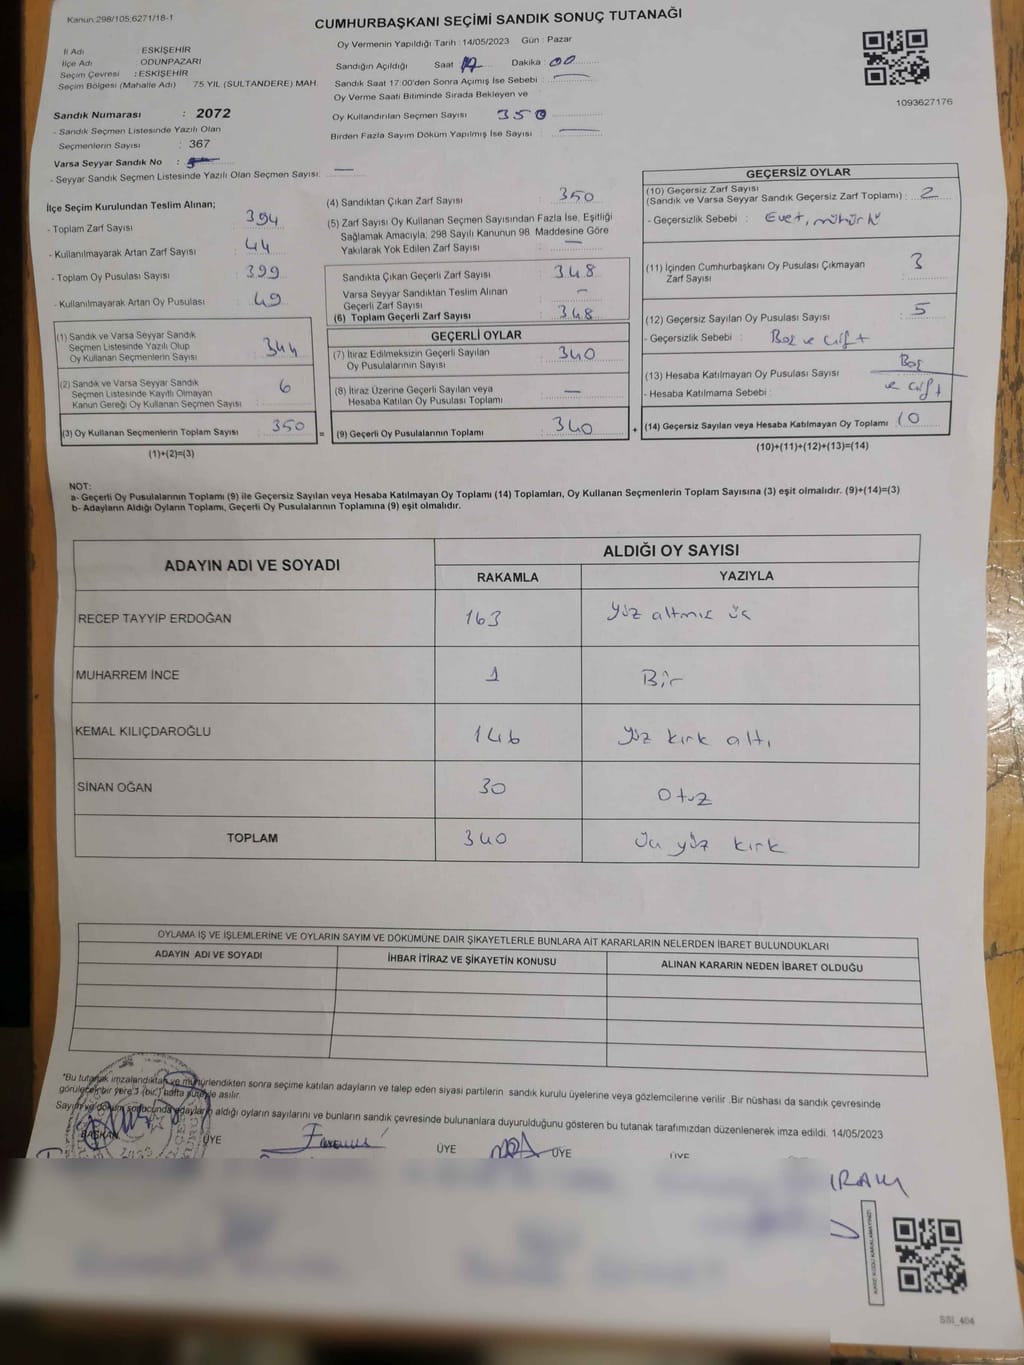 Kanun:298/105;6271/18-1
CUMHURBAŞKANI SEÇİMİ SANDIK SONUÇ TUTANAĞI
İl Adı : ESKİŞEHİR
İlçe Adı : ODUNPAZARI
Seçim Çevresi : ESKİŞEHİR
Seçim Bölgesi (Mahalle Adı) 75 YIL (SULTANDERE) MAH.
Sandık Numarası : 2072
- Sandık Seçmen Listesinde Yazılı Olan
Seçmenlerin Sayısı : 367
Varsa Seyyar Sandık No :
- Seyyar Sandık Seçmen Listesinde Yazılı Olan Seçmen Sayısı: —
Oy Vermenin Yapıldığı Tarih : 14/05/2023 Gün : Pazar
Sandığın Açıldığı Saat : 17 Dakika : 00
Sandık Saat 17:00'den Sonra Açımış İse Sebebi : —
Oy Verme Saati Bitiminde Sırada Bekleyen ve
Oy Kullandırılan Seçmen Sayısı : 350
Birden Fazla Sayım Döküm Yapılmış İse Sayısı : —
1093627176
İlçe Seçim Kurulundan Teslim Alınan;
- Toplam Zarf Sayısı : 394
- Kullanılmayarak Artan Zarf Sayısı : 44
- Toplam Oy Pusulası Sayısı : 399
- Kullanılmayarak Artan Oy Pusulası : 49
(1) Sandık ve Varsa Seyyar Sandık
Seçmen Listesinde Yazılı Olup
Oy Kullanan Seçmenlerin Sayısı : 344
(2) Sandık ve Varsa Seyyar Sandık
Seçmen Listesinde Kayıtlı Olmayan
Kanun Gereği Oy Kullanan Seçmen Sayısı : 6
(3) Oy Kullanan Seçmenlerin Toplam Sayısı : 350
(1)+(2)=(3)
(4) Sandıktan Çıkan Zarf Sayısı : 350
(5) Zarf Sayısı Oy Kullanan Seçmen Sayısından Fazla İse, Eşitliği
Sağlamak Amacıyla; 298 Sayılı Kanunun 98. Maddesine Göre
Yakılarak Yok Edilen Zarf Sayısı : —
Sandıkta Çıkan Geçerli Zarf Sayısı : 348
Varsa Seyyar Sandıktan Teslim Alınan
Geçerli Zarf Sayısı : —
(6) Toplam Geçerli Zarf Sayısı : 348
GEÇERLİ OYLAR
(7) İtiraz Edilmeksizin Geçerli Sayılan
Oy Pusulalarının Sayısı : 340
(8) İtiraz Üzerine Geçerli Sayılan veya
Hesaba Katılan Oy Pusulası Toplamı : —
= (9) Geçerli Oy Pusulalarının Toplamı : 340
GEÇERSİZ OYLAR
(10) Geçersiz Zarf Sayısı
(Sandık ve Varsa Seyyar Sandık Geçersiz Zarf Toplamı) : 2
- Geçersizlik Sebebi : Evet, mühürlü
(11) İçinden Cumhurbaşkanı Oy Pusulası Çıkmayan
Zarf Sayısı : 3
(12) Geçersiz Sayılan Oy Pusulası Sayısı : 5
- Geçersizlik Sebebi : Boş ve Çift
(13) Hesaba Katılmayan Oy Pusulası Sayısı : Boş
- Hesaba Katılmama Sebebi : ve Çift
+ (14) Geçersiz Sayılan veya Hesaba Katılmayan Oy Toplamı : 10
(10)+(11)+(12)+(13)=(14)
NOT:
a- Geçerli Oy Pusulalarının Toplamı (9) ile Geçersiz Sayılan veya Hesaba Katılmayan Oy Toplamı (14) Toplamları, Oy Kullanan Seçmenlerin Toplam Sayısına (3) eşit olmalıdır. (9)+(14)=(3)
b- Adayların Aldığı Oyların Toplamı, Geçerli Oy Pusulalarının Toplamına (9) eşit olmalıdır.
ADAYIN ADI VE SOYADI
ALDIĞI OY SAYISI
RAKAMLA YAZIYLA
RECEP TAYYİP ERDOĞAN 163 Yüz altmış üç
MUHARREM İNCE 1 Bir
KEMAL KILIÇDAROĞLU 146 Yüz kırk altı
SİNAN OĞAN 30 Otuz
TOPLAM 340 Üç yüz kırk
OYLAMA İŞ VE İŞLEMLERİNE VE OYLARIN SAYIM VE DÖKÜMÜNE DAİR ŞİKAYETLERLE BUNLARA AİT KARARLARIN NELERDEN İBARET BULUNDUKLARI
ADAYIN ADI VE SOYADI İHBAR İTİRAZ VE ŞİKAYETİN KONUSU ALINAN KARARIN NEDEN İBARET OLDUĞU
*Bu tutanak imzalandıktan ve mühürlendikten sonra seçime katılan adayların ve talep eden siyasi partilerin sandık kurulu üyelerine veya gözlemcilerine verilir .Bir nüshası da sandık çevresinde
görülecek bir yere 1 (bir) hafta süreyle asılır.
Sayım ve döküm sonucunda adayların aldığı oyların sayılarını ve bunların sandık çevresinde bulunanlara duyurulduğunu gösteren bu tutanak tarafımızdan düzenlenerek imza edildi. 14/05/2023
BAŞKAN ÜYE ÜYE ÜYE ÜYE
KARE KODU KARALAMAYINIZ!
SSI_404